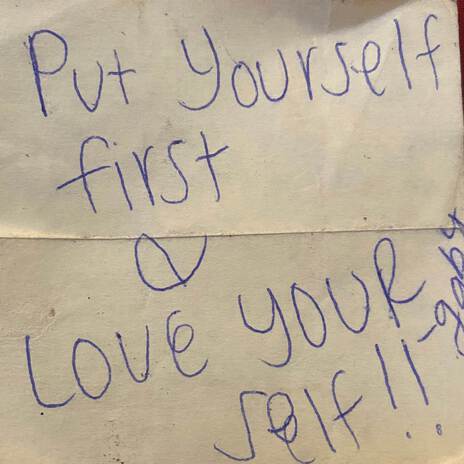 Put Yourself
first
&
LOVE YOUR
self!!
-gaby